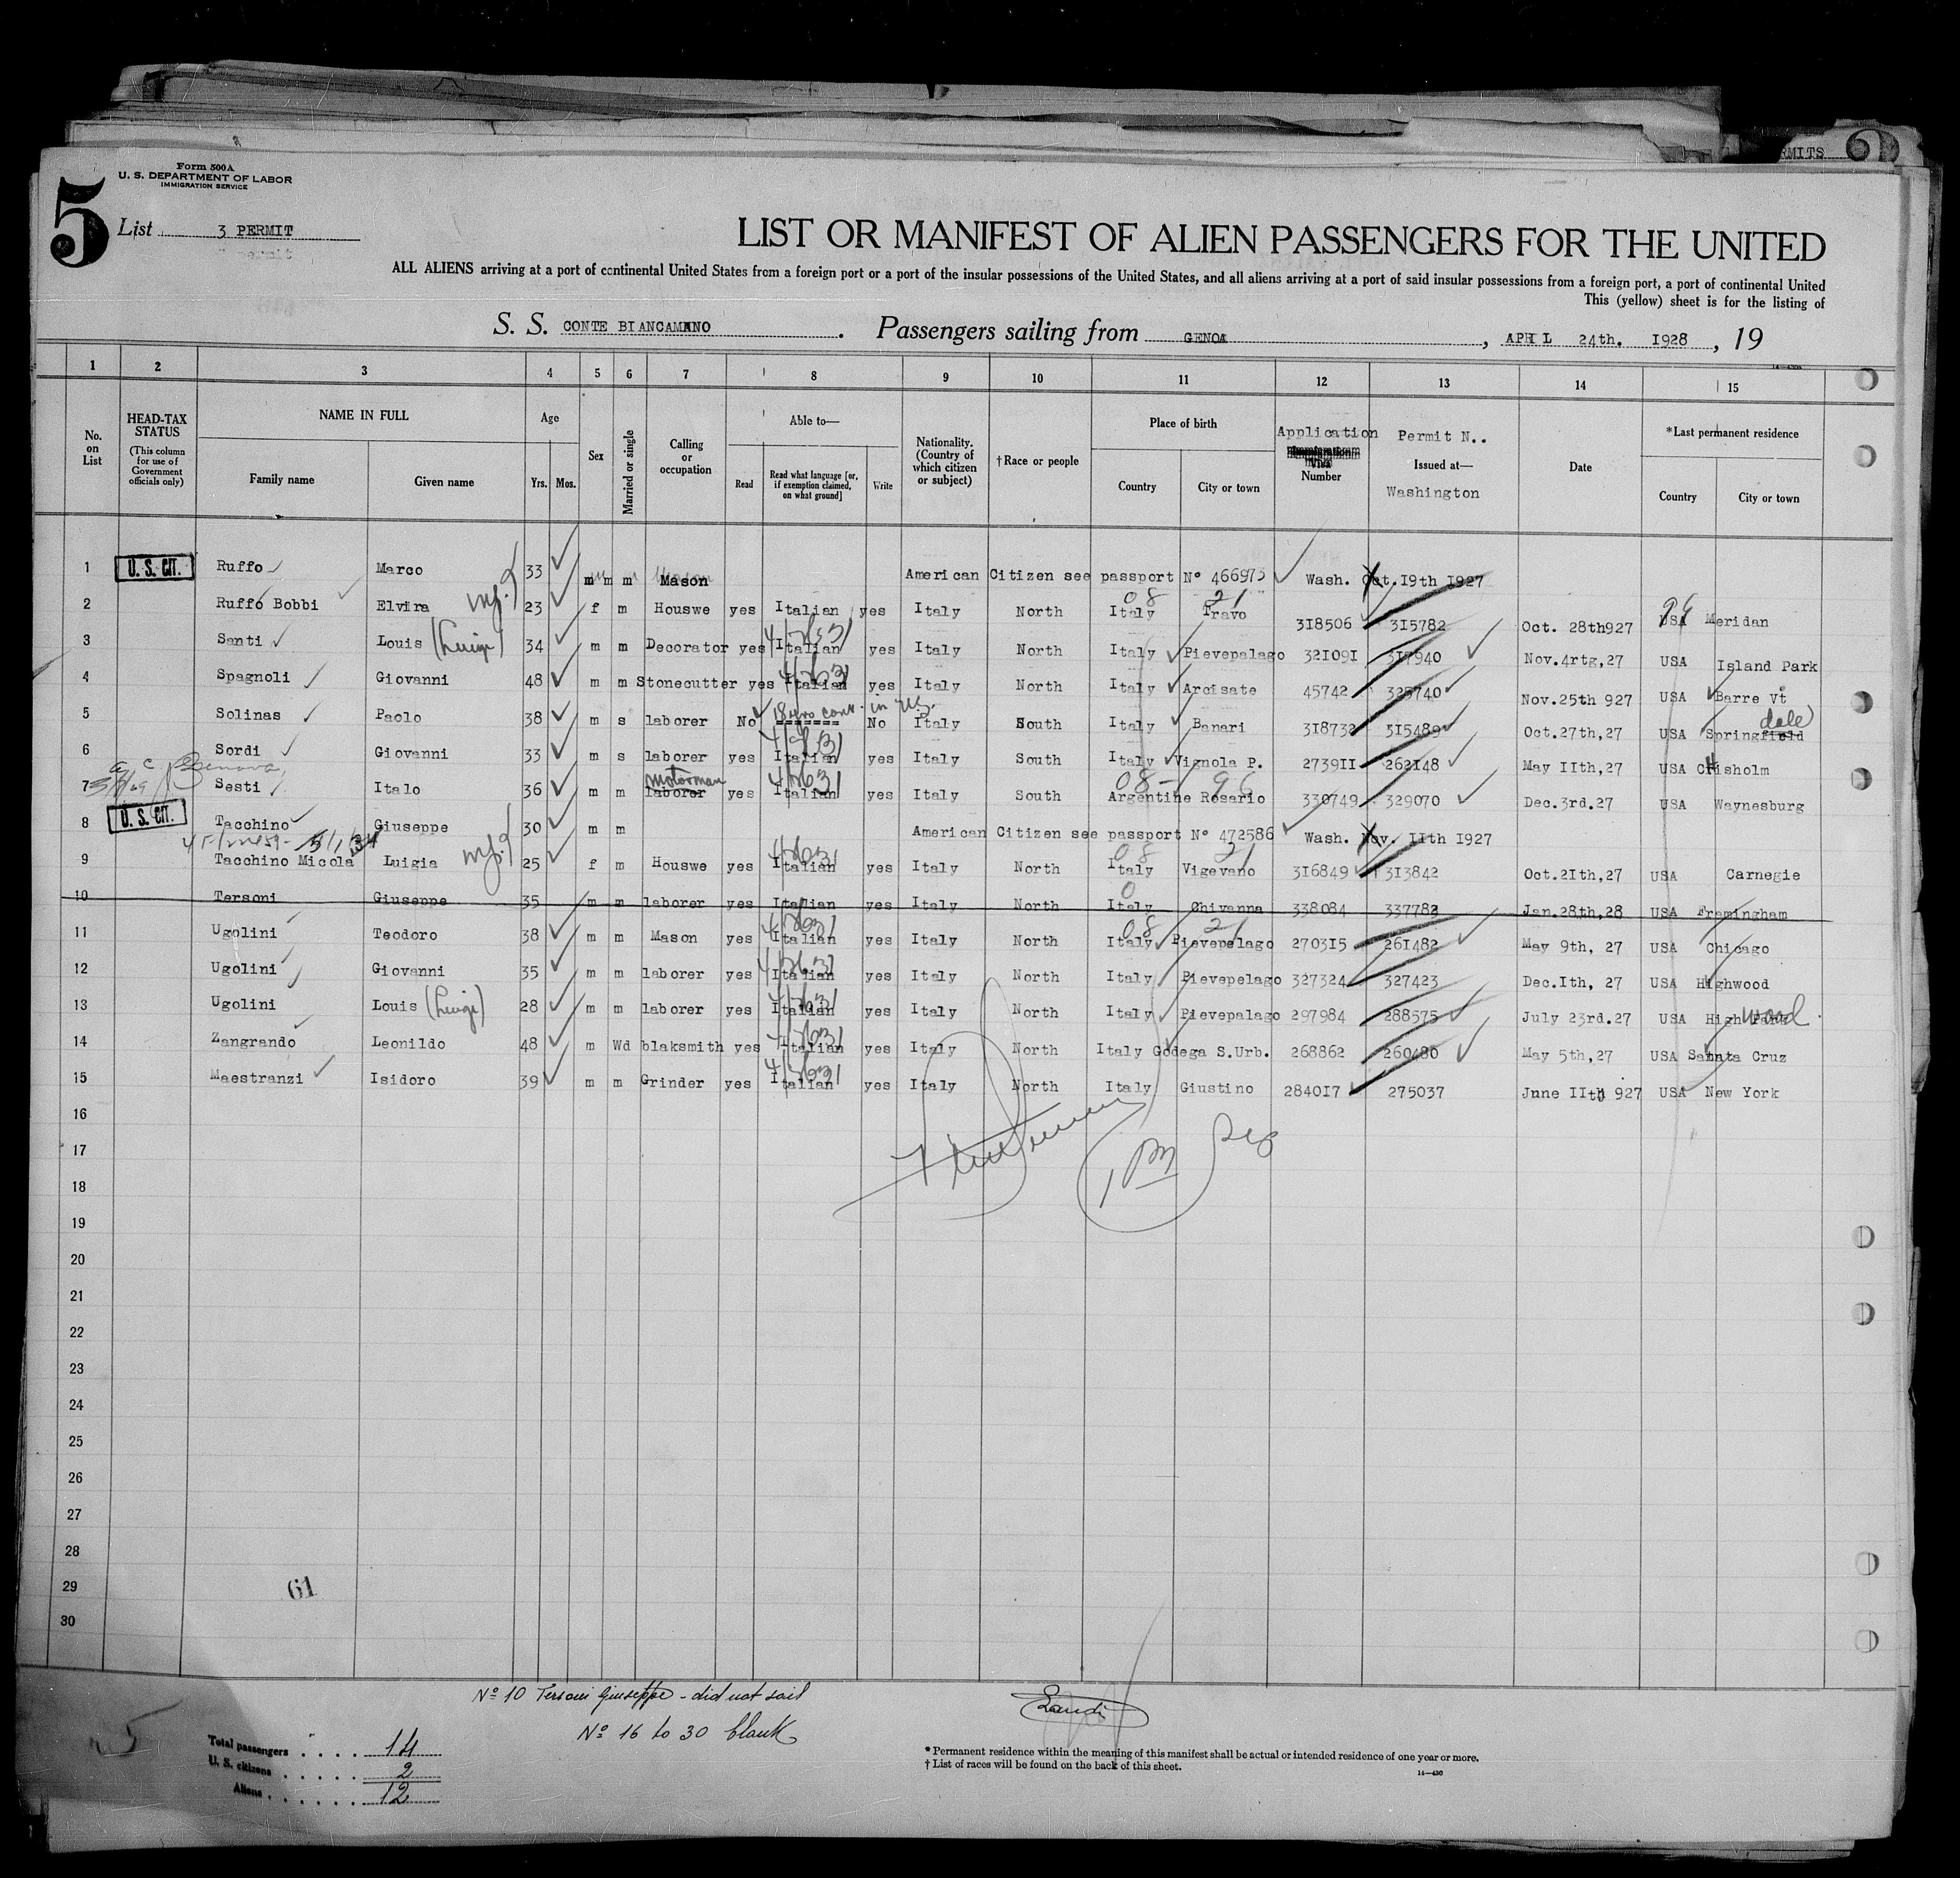 RMITS
Form 500 A
U. S. DEPARTMENT OF LABOR
IMMIGRATION SERVICE
5
List 3 PERMIT
LIST OR MANIFEST OF ALIEN PASSENGERS FOR THE UNITED
ALL ALIENS arriving at a port of continental United States from a foreign port or a port of the insular possessions of the United States, and all aliens arriving at a port of said insular possessions from a foreign port, a port of continental United
This (yellow) sheet is for the listing of
S. S. CONTE BIANCAMANO. Passengers sailing from GENOA, APRIL 24th. 1928, 19
1 2 3 4 5 6 7 8 9 10 11 12 13 14 15
No. on List
HEAD-TAX STATUS (This column for use of Government officials only)
NAME IN FULL Family name Given name
Age Yrs. Mos.
Sex
Married or single
Calling or occupation
Able to— Read Read what language [or, if exemption claimed, on what ground] Write
Nationality. (Country of which citizen or subject)
†Race or people
Place of birth Country City or town
Application Number
Permit N.. Issued at— Washington
Date
*Last permanent residence Country City or town
1 U. S. CIT. Ruffo Marco 33 m m Mason American Citizen see passport Nº 466973 Wash. Oct.19th 1927
2 Ruffo Bobbi Elvira 23 f m Houswe yes Italian yes Italy North Italy Travo 318506 315782 Oct. 28th927 USA Meridan
3 Santi Louis (Luigi) 34 m m Decorator yes Italian yes Italy North Italy Pievepalago 321091 317940 Nov.4rtg,27 USA Island Park
4 Spagnoli Giovanni 48 m m Stonecutter yes Italian yes Italy North Italy Arcisate 45742 325740 Nov.25th 927 USA Barre Vt
5 Solinas Paolo 38 m s laborer No 18 yrs cont. in U.S. No Italy South Italy Banari 318732 315489 Oct.27th,27 USA Springfield dale
6 Sordi Giovanni 33 m s laborer yes Italian yes Italy South Italy Vignola P. 273911 262148 May IIth,27 USA Chisholm
7 Sesti Italo 36 m m laborer motorman yes Italian yes Italy South Argentine Rosario 330749 329070 Dec.3rd.27 USA Waynesburg
8 U. S. CIT. Tacchino Giuseppe 30 m m American Citizen see passport Nº 472586 Wash. Nov. IIth 1927
9 Tacchino Micola Luigia 25 f m Houswe yes Italian yes Italy North Italy Vigevano 316849 313842 Oct.2Ith,27 USA Carnegie
10 Tersoni Giuseppe 35 m m laborer yes Italian yes Italy North Italy Chivanna 338084 337782 Jan.28th,28 USA Framingham
11 Ugolini Teodoro 38 m m Mason yes Italian yes Italy North Italy Pievepelago 270315 261482 May 9th, 27 USA Chicago
12 Ugolini Giovanni 35 m m laborer yes Italian yes Italy North Italy Pievepelago 327324 327423 Dec.Ith, 27 USA Highwood
13 Ugolini Louis (Luigi) 28 m m laborer yes Italian yes Italy North Italy Pievepalago 297984 288575 July 23rd.27 USA High wood
14 Zangrando Leonildo 48 m Wd blaksmith yes Italian yes Italy North Italy Godega S.Urb. 268862 260480 May 5th,27 USA Santa Cruz
15 Maestranzi Isidoro 39 m m Grinder yes Italian yes Italy North Italy Giustino 284017 275037 June IIth 927 USA New York
16
17
18
19
20
21
22
23
24
25
26
27
28
29
30
61
Nº 10 Tersoni Giuseppe - did not sail
Nº 16 to 30 blank
Landi
Total passengers . . . . 14
U. S. citizens . . . . . 2
Aliens . . . . . . 12
* Permanent residence within the meaning of this manifest shall be actual or intended residence of one year or more.
† List of races will be found on the back of this sheet.
14—430